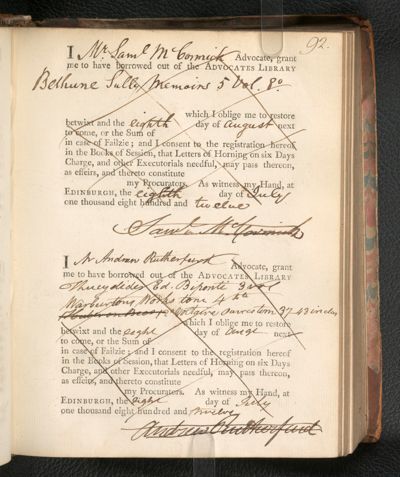 92.
I Mr. Saml. McCormick Advocate, grant
me to have borrowed out of the ADVOCATES LIBRARY
Bethune Sully Memoirs 5 Vol. 8o.
which I oblige me to restore
betwixt and the eighth day of August next
to come, or the Sum of
in case of Failzie; and I consent to the registration hereof
in the Books of Session, that Letters of Horning on six Days
Charge, and other Executorials needful, may pass thereon,
as effeirs, and thereto constitute
my Procurators. As witness my Hand, at
EDINBURGH, the eighth day of July
one thousand eight hundred and twelve
Saml. McCormick
I Mr Andrew Rutherfurd Advocate, grant
me to have borrowed out of the ADVOCATES LIBRARY
Thucydides Ed. Biponti 3 vol
Warburtons Works tom 4th
Voltaire 37 43
which I oblige me to restore
betwixt and the eight day of Augt next
to come, or the Sum of
in case of Failzie; and I consent to the registration hereof
in the Books of Session, that Letters of Horning on six Days
Charge, and other Executorials needful, may pass thereon,
as effeirs, and thereto constitute
my Procurators. As witness my Hand, at
EDINBURGH, the eight day of July
one thousand eight hundred and twelve
Andrew Rutherfurd